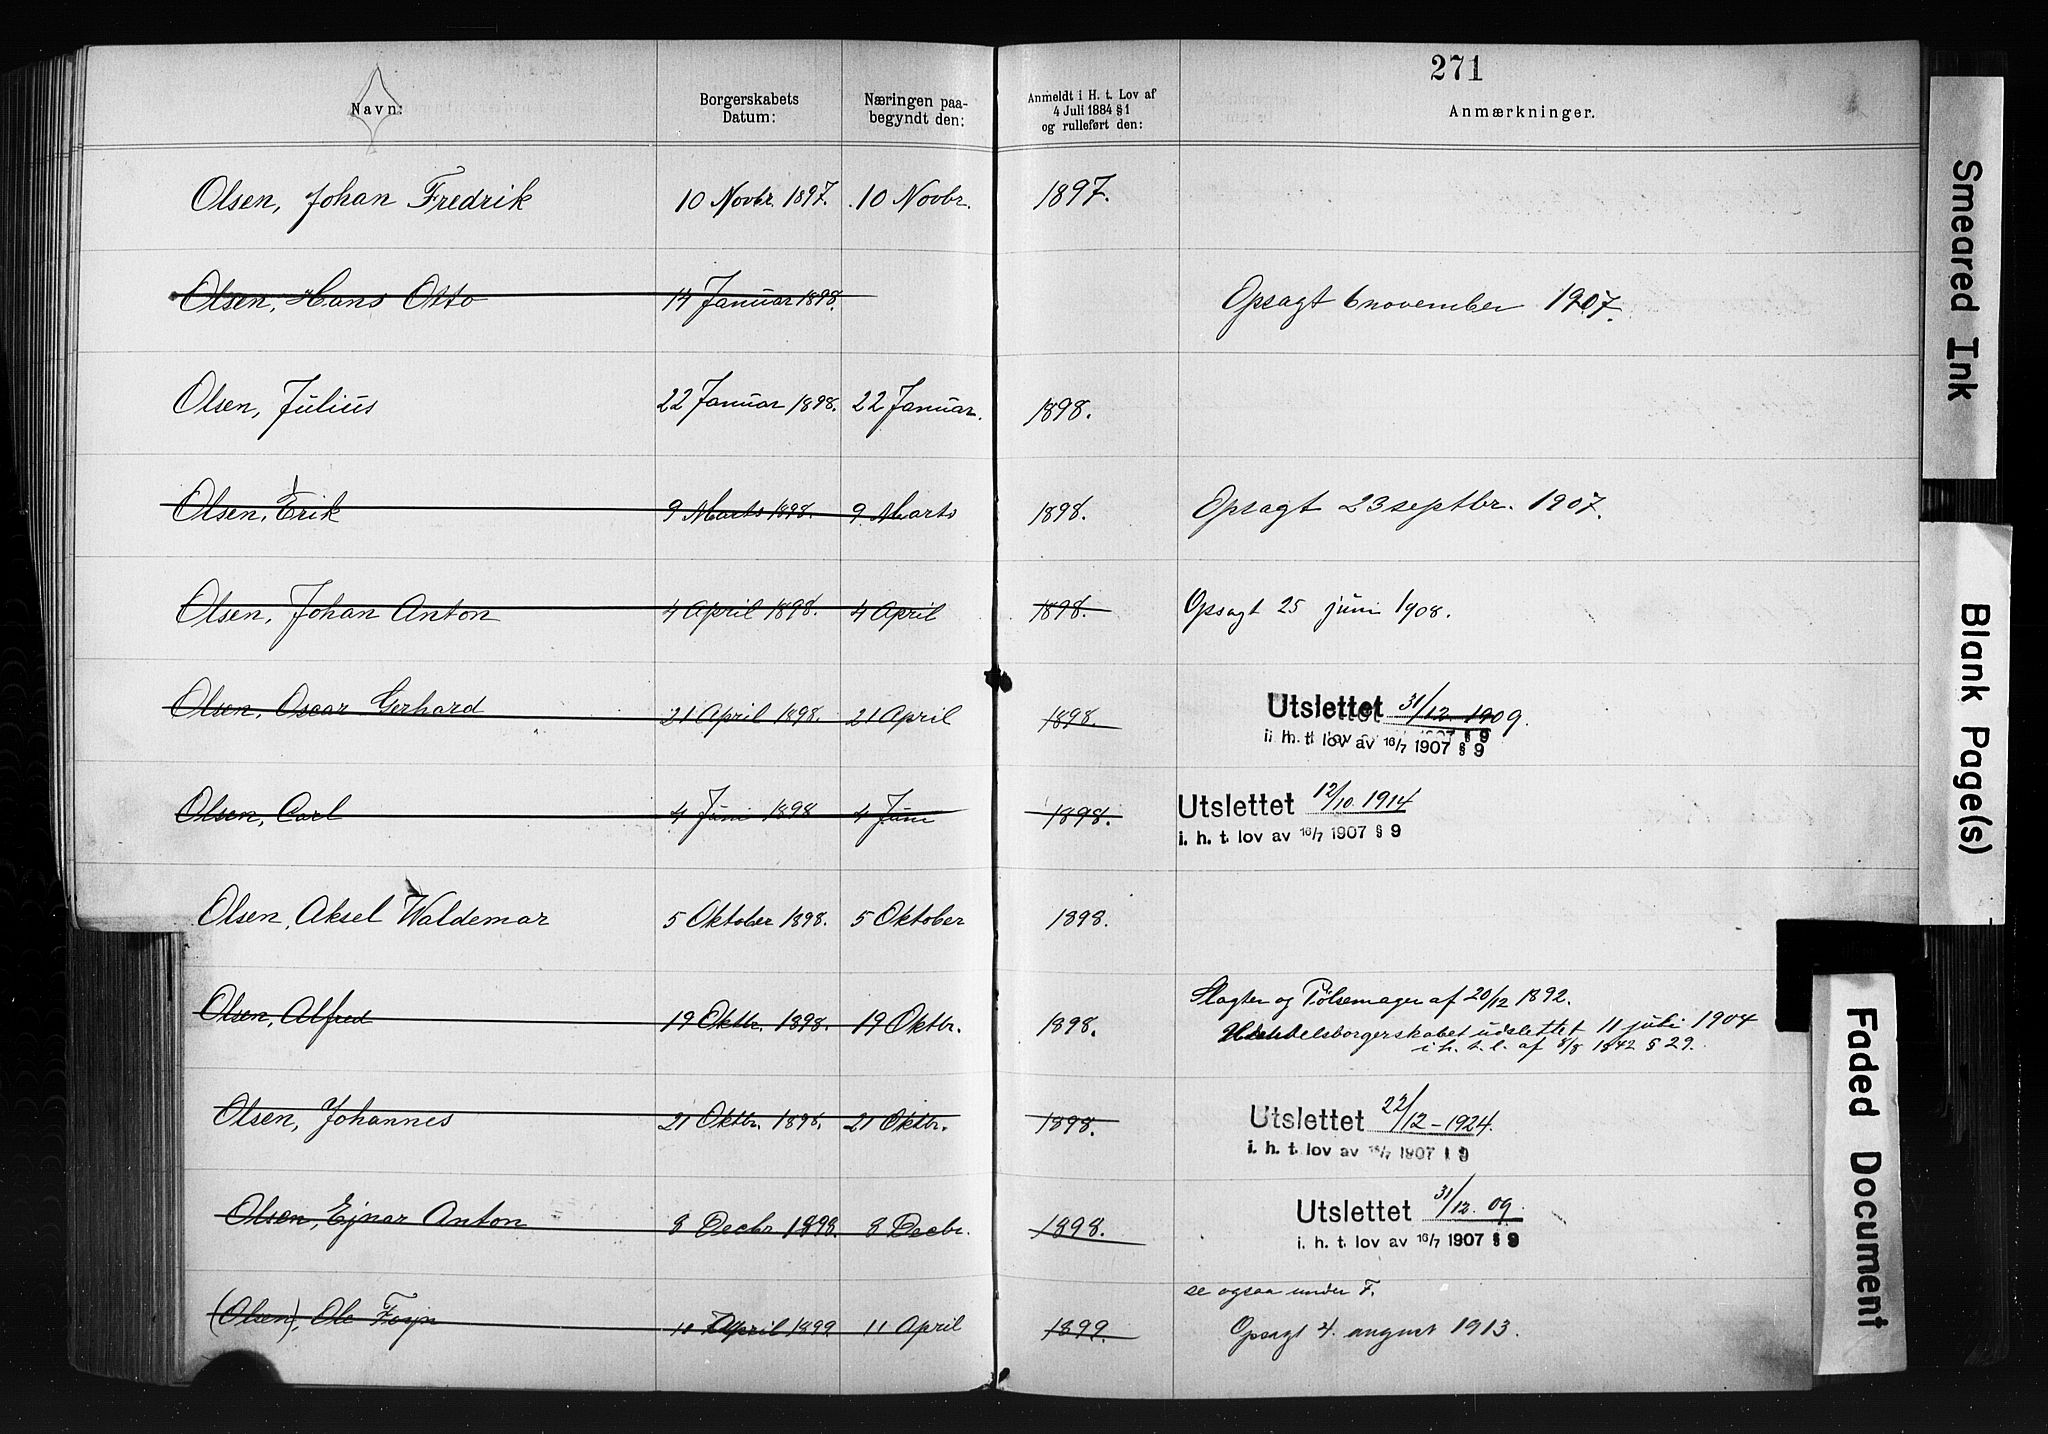 271
Navn:
Borgerskabets Datum:
Næringen paa-begyndt den:
Anmeldt i H. t. Lov af 4 Juli 1884 § 1 og rulleført den:
Anmærkninger.
Olsen, Johan Fredrik 10 Novbr. 1897. 10 Novbr. 1897.
Olsen, Hans Otto 14 Januar 1898. Opsagt 6 november 1907.
Olsen, Julius 22 Januar 1898. 22 Januar. 1898.
Olsen, Erik 9 Marts 1898. 9 Marts 1898. Opsagt 23 septbr. 1907.
Olsen, Johan Anton 4 April 1898. 4 April 1898. Opsagt 25 juni 1908.
Olsen, Oscar Gerhard 21 April 1898. 21 April 1898. Utslettet 31/12. 1909.
i. h. t. lov av 16/7 1907 § 9
Olsen, Carl 4 Juni 1898 4 Juni 1898. Utslettet 12/10. 1914
i. h. t. lov av 16/7 1907 § 9
Olsen, Aksel Waldemar 5 Oktober 1898. 5 Oktober 1898.
Slagter og Pølsemager af 20/12 1892.
Olsen, Alfred 19 Oktbr. 1898. 19 Oktbr. 1898. Handelsborgerskabet udslettet 11 juli 1904
i. h. t. l. af 8/8 1842 § 29.
Olsen, Johannes 21 Oktbr. 1898. 21 Oktbr. 1898. Utslettet 22/12 - 1924.
i. h. t. lov av 16/7 1907 § 9
Olsen, Ejnar Anton 8 Decbr 1898. 8 Decbr. 1898. Utslettet 31/12. 09.
i. h. t. lov av 16/7 1907 § 9
se ogsaa under F.
(Olsen), Ole Foyn 11 April 1899 11 April 1899. Opsagt 4. august 1913.
Smeared Ink
Blank Page(s)
Faded Document